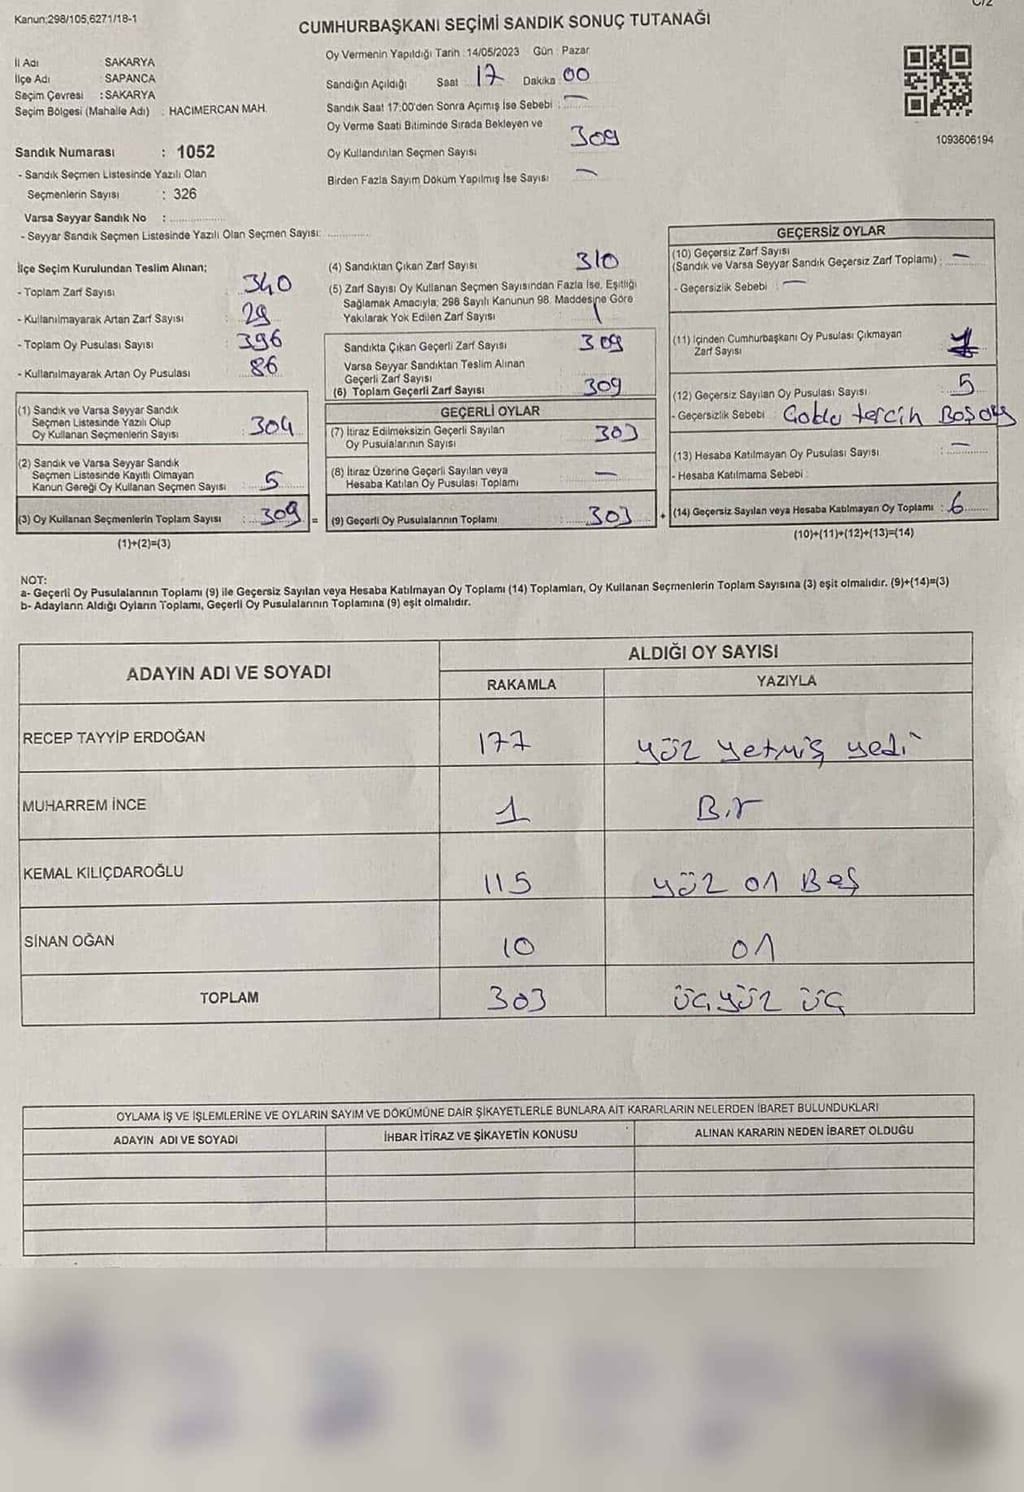 Kanun:298/105,6271/18-1
C/2
CUMHURBAŞKANI SEÇİMİ SANDIK SONUÇ TUTANAĞI
İl Adı SAKARYA
İlçe Adı : SAPANCA
Seçim Çevresi : SAKARYA
Seçim Bölgesi (Mahalle Adı) : HACIMERCAN MAH.
Sandık Numarası : 1052
- Sandık Seçmen Listesinde Yazılı Olan
Seçmenlerin Sayısı : 326
Varsa Seyyar Sandık No :
- Seyyar Sandık Seçmen Listesinde Yazılı Olan Seçmen Sayısı:
Oy Vermenin Yapıldığı Tarih :14/05/2023 Gün : Pazar
Sandığın Açıldığı Saat 17 Dakika 00
Sandık Saat 17:00'den Sonra Açımış İse Sebebi : —
Oy Verme Saati Bitiminde Sırada Bekleyen ve
Oy Kullandırılan Seçmen Sayısı 309
Birden Fazla Sayım Döküm Yapılmış İse Sayısı —
1093606194
İlçe Seçim Kurulundan Teslim Alınan;
- Toplam Zarf Sayısı : 340
- Kullanılmayarak Artan Zarf Sayısı : 29
- Toplam Oy Pusulası Sayısı : 396
- Kullanılmayarak Artan Oy Pusulası : 86
(1) Sandık ve Varsa Seyyar Sandık
Seçmen Listesinde Yazılı Olup
Oy Kullanan Seçmenlerin Sayısı : 304
(2) Sandık ve Varsa Seyyar Sandık
Seçmen Listesinde Kayıtlı Olmayan
Kanun Gereği Oy Kullanan Seçmen Sayısı : 5
(3) Oy Kullanan Seçmenlerin Toplam Sayısı : 309 =
(1)+(2)=(3)
(4) Sandıktan Çıkan Zarf Sayısı 310
(5) Zarf Sayısı Oy Kullanan Seçmen Sayısından Fazla İse, Eşitliği
Sağlamak Amacıyla; 298 Sayılı Kanunun 98. Maddesine Göre
Yakılarak Yok Edilen Zarf Sayısı 1
Sandıkta Çıkan Geçerli Zarf Sayısı : 309
Varsa Seyyar Sandıktan Teslim Alınan
Geçerli Zarf Sayısı
(6) Toplam Geçerli Zarf Sayısı : 309
GEÇERLİ OYLAR
(7) İtiraz Edilmeksizin Geçerli Sayılan
Oy Pusulalarının Sayısı : 303
(8) İtiraz Üzerine Geçerli Sayılan veya
Hesaba Katılan Oy Pusulası Toplamı : —
(9) Geçerli Oy Pusulalarının Toplamı : 303 +
GEÇERSİZ OYLAR
(10) Geçersiz Zarf Sayısı
(Sandık ve Varsa Seyyar Sandık Geçersiz Zarf Toplamı) : —
- Geçersizlik Sebebi : —
(11) İçinden Cumhurbaşkanı Oy Pusulası Çıkmayan
Zarf Sayısı 1
(12) Geçersiz Sayılan Oy Pusulası Sayısı : 5
- Geçersizlik Sebebi : tercih
(13) Hesaba Katılmayan Oy Pusulası Sayısı : —
- Hesaba Katılmama Sebebi :
(14) Geçersiz Sayılan veya Hesaba Katılmayan Oy Toplamı : 6
(10)+(11)+(12)+(13)=(14)
NOT:
a- Geçerli Oy Pusulalarının Toplamı (9) ile Geçersiz Sayılan veya Hesaba Katılmayan Oy Toplamı (14) Toplamları, Oy Kullanan Seçmenlerin Toplam Sayısına (3) eşit olmalıdır. (9)+(14)=(3)
b- Adayların Aldığı Oyların Toplamı, Geçerli Oy Pusulalarının Toplamına (9) eşit olmalıdır.
ADAYIN ADI VE SOYADI ALDIĞI OY SAYISI
RAKAMLA YAZIYLA
RECEP TAYYİP ERDOĞAN 177 yüz yetmiş yedi
MUHARREM İNCE 1 Bir
KEMAL KILIÇDAROĞLU 115 yüz on Beş
SİNAN OĞAN 10 on
TOPLAM 303 üçyüz üç
OYLAMA İŞ VE İŞLEMLERİNE VE OYLARIN SAYIM VE DÖKÜMÜNE DAİR ŞİKAYETLERLE BUNLARA AİT KARARLARIN NELERDEN İBARET BULUNDUKLARI
ADAYIN ADI VE SOYADI İHBAR İTİRAZ VE ŞİKAYETİN KONUSU ALINAN KARARIN NEDEN İBARET OLDUĞU